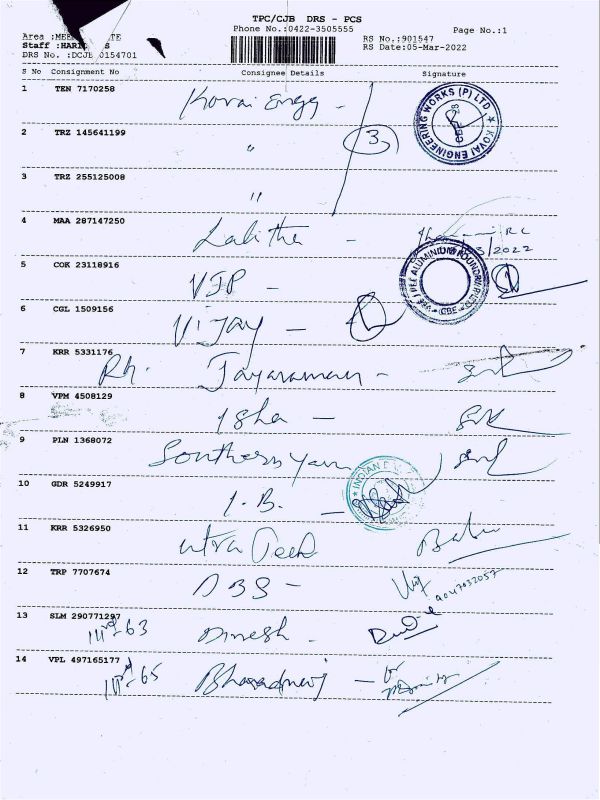 TPC/CJB DRS - PCS
Phone No.:0422-3505555 Page No.:1
Area :MEE TE RS No.:901547
Staff :HARI S RS Date:05-Mar-2022
DRS No. :DCJB 0154701
S No Consignment No Consignee Details Signature
1 TEN 7170258 Kovai Engg -
KOVAI ENGINEERING WORKS (P) LTD
2 TRZ 145641199 " 3
3 TRZ 255125008 "
4 MAA 287147250 Lalitha -
3/2022
5 COK 23118916 VIP -
ALUMINIUM CBE
6 CGL 1509156 Vijay -
7 KRR 5331176 Rh. Jayaraman -
8 VPM 4508129 Isha -
9 PLN 1368072 Southern Yarn
10 GDR 5249917 I.B. -
INDIAN
11 KRR 5326950 Babu
12 TRP 7707674 DBS -
13 SLM 290771297 63 Dinesh -
14 VPL 497165177 65 Bharadwaj -